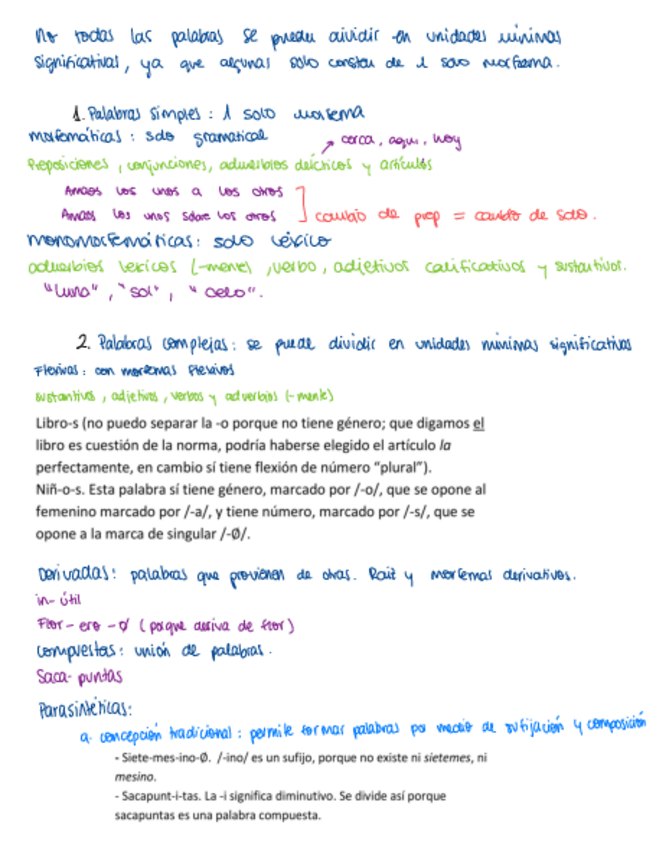 No todas las palabras se pueden dividir en unidades mínimas
significativas, ya que algunas solo constan de 1 solo morfema.
1. Palabras simples: 1 solo morfema
morfemáticas: solo gramatical
↗ cerca, aquí, hoy
Preposiciones, conjunciones, adverbios deícticos y artículos
Amaos los unos a los otros
Amaos los unos sobre los otros
cambio de prep = cambio de sdo.
monomorfemáticas: solo léxico
adverbios léxicos (-mente), verbo, adjetivos calificativos y sustantivos.
"luna", "sol", "cielo".
2. Palabras complejas: se puede dividir en unidades mínimas significativas
Flexivas: con morfemas flexivos
sustantivos, adjetivos, verbos y adverbios (-mente)
Libro-s (no puedo separar la -o porque no tiene género; que digamos el
libro es cuestión de la norma, podría haberse elegido el artículo la
perfectamente, en cambio sí tiene flexión de número “plural”).
Niñ-o-s. Esta palabra sí tiene género, marcado por /-o/, que se opone al
femenino marcado por /-a/, y tiene número, marcado por /-s/, que se
opone a la marca de singular /-Ø/.
Derivadas: palabras que provienen de otras. Raíz y morfemas derivativos.
in-útil
Flor-ero-Ø (porque deriva de flor)
compuestas: unión de palabras.
Saca-puntas
Parasintéticas:
a. concepción tradicional: permite formar palabras por medio de sufijación y composición
- Siete-mes-ino-Ø. /-ino/ es un sufijo, porque no existe ni sietemes, ni
mesino.
- Sacapunt-i-tas. La -i significa diminutivo. Se divide así porque
sacapuntas es una palabra compuesta.